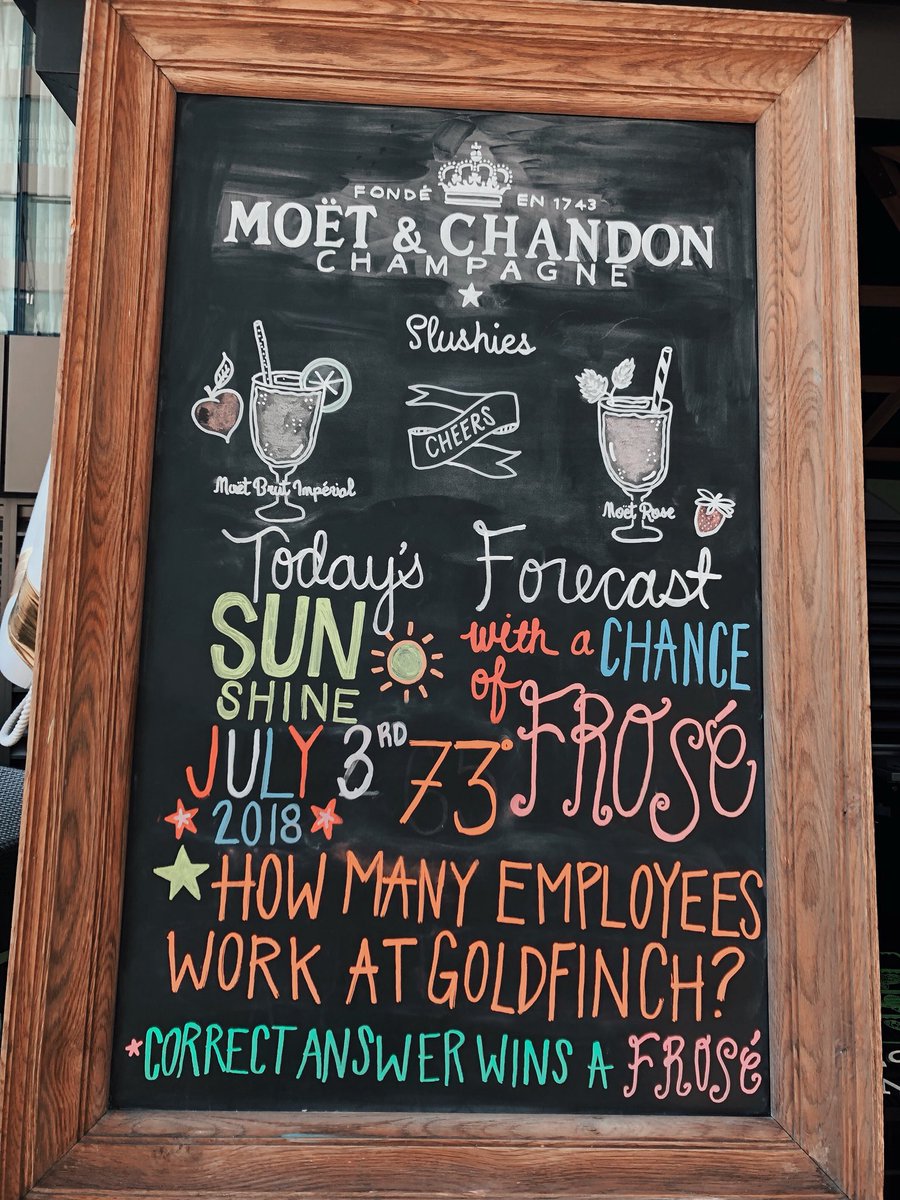 FONDÉ EN 1743
MOËT & CHANDON
CHAMPAGNE
Slushies
CHEERS
Moët Brut Impérial
Moët Rose
Today's Forecast
SUN
SHINE
with a CHANCE
of FROSÉ
JULY 3RD
2018
73°
HOW MANY EMPLOYEES
WORK AT GOLDFINCH?
*CORRECT ANSWER WINS A FROSÉ